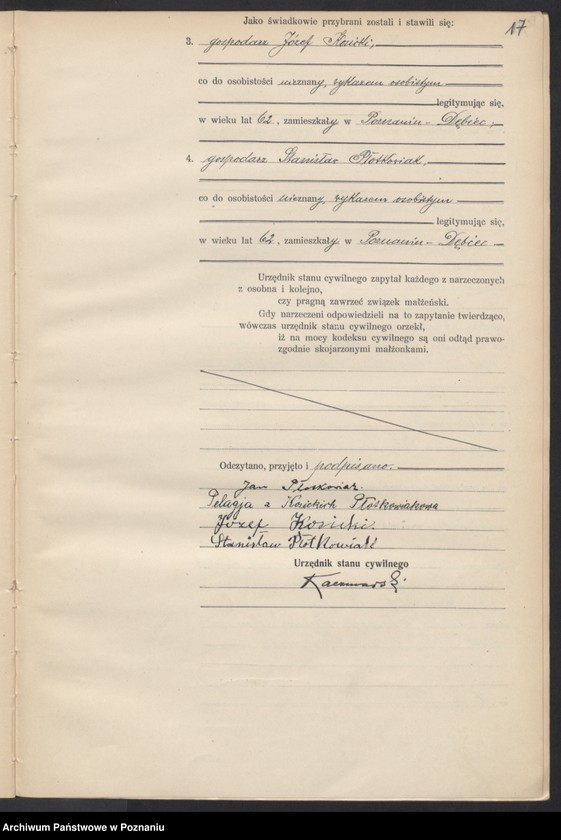 17
Jako świadkowie przybrani zostali i stawili się:
3. gospodarz Józef Kosicki,
co do osobistości nieznany, wykazem osobistym
legitymując się,
w wieku lat 62, zamieszkały w Poznaniu - Dębiec,
4. gospodarz Stanisław Płotkowiak,
co do osobistości nieznany, wykazem osobistym
legitymując się,
w wieku lat 62, zamieszkały w Poznaniu - Dębiec
Urzędnik stanu cywilnego zapytał każdego z narzeczonych
z osobna i kolejno,
czy pragną zawrzeć związek małżeński.
Gdy narzeczeni odpowiedzieli na to zapytanie twierdząco,
wówczas urzędnik stanu cywilnego orzekł,
iż na mocy kodeksu cywilnego są oni odtąd prawo-
zgodnie skojarzonymi małżonkami.
Odczytano, przyjęto i podpisano.
Jan Płotkowiak.
Pelagja z Kosickich Płotkowiakowa
Józef Kosicki.
Stanisław Płotkowiak
Urzędnik stanu cywilnego
Kaczmarski
Archiwum Państwowe w Poznaniu